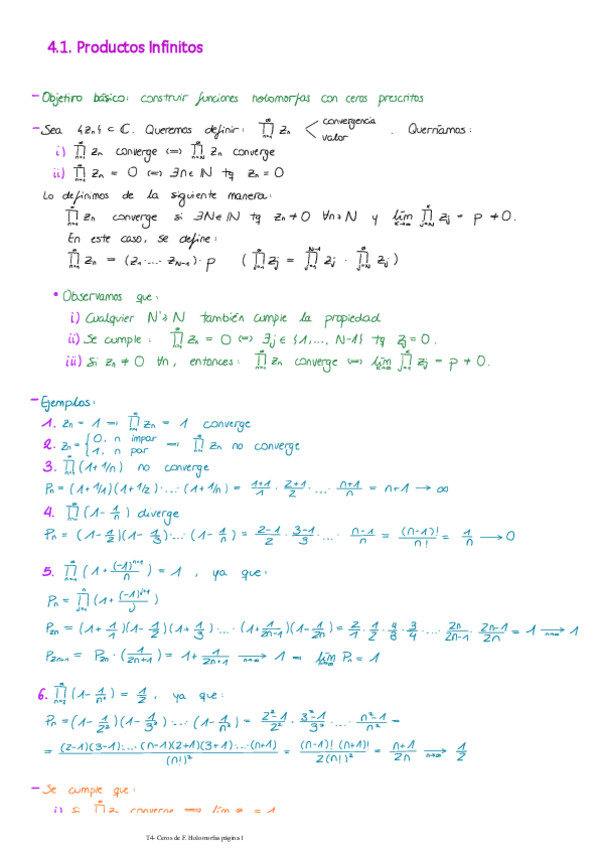 4.1. Productos Infinitos
– Objetivo básico: construir funciones holomorfas con ceros prescritos
– Sea {zₙ} ⊂ ℂ. Queremos definir: ∏ₙ₌₁^∞ zₙ < convergencia / valor . Querríamos:
i) ∏ₙ₌₁^∞ zₙ converge ⟺ ∏ₙ₌N^∞ zₙ converge
ii) ∏ₙ₌₁^∞ zₙ = 0 ⟺ ∃n∈ℕ tq zₙ = 0
Lo definimos de la siguiente manera:
∏ₙ₌₁^∞ zₙ converge si ∃N∈ℕ tq zₙ ≠ 0 ∀n≥N y lim ∏ zⱼ = p ≠ 0.
En este caso, se define:
∏ₙ₌₁^∞ zₙ = (z₁ · ... · z_{N-1}) · p ( ∏ⱼ₌₁^∞ zⱼ = ∏ⱼ₌₁^{N-1} zⱼ · ∏ⱼ₌N^∞ zⱼ )
• Observamos que:
i) Cualquier N' ≥ N también cumple la propiedad
ii) Se cumple: ∏ₙ₌₁^∞ zₙ = 0 ⟺ ∃j ∈ {1, ..., N-1} tq zⱼ = 0.
iii) Si zₙ ≠ 0 ∀n, entonces: ∏ₙ₌₁^∞ zₙ converge ⟺ lim ∏ zⱼ = p ≠ 0.
– Ejemplos:
1. zₙ = 1 ⟹ ∏ₙ₌₁^∞ zₙ = 1 converge
2. zₙ = { 0, n impar / 1, n par ⟹ ∏ₙ₌₁^∞ zₙ no converge
3. ∏ₙ₌₁^∞ (1 + 1/n) no converge
Pₙ = (1 + 1/1)(1 + 1/2) · ... · (1 + 1/n) = (1+1)/1 · (2+1)/2 · ... · (n+1)/n = n+1 → ∞
4. ∏ (1 - 1/n) diverge
Pₙ = (1 - 1/2)(1 - 1/3) · ... · (1 - 1/n) = (2-1)/2 · (3-1)/3 · ... · (n-1)/n = (n-1)!/n! = 1/n → 0
5. ∏ₙ₌₁^∞ (1 + (-1)^{n+1}/n) = 1 , ya que:
Pₙ = ∏ⱼ₌₁ⁿ (1 + (-1)^{j+1}/j)
P₂ₙ = (1 + 1/1)(1 - 1/2)(1 + 1/3) · ... · (1 + 1/(2n-1))(1 - 1/2n) = 2/1 · 1/2 · 4/3 · 3/4 · ... · 2n/(2n-1) · (2n-1)/2n = 1 → 1
P₂ₙ₊₁ = P₂ₙ · (1/(2n+1)) = 1 + 1/(2n+1) → 1 ⟹ lim Pₙ = 1
6. ∏ₙ₌₂^∞ (1 - 1/n²) = 1/2 , ya que:
Pₙ = (1 - 1/2²)(1 - 1/3²) · ... · (1 - 1/n²) = (2²-1)/2² · (3²-1)/3² · ... · (n²-1)/n² =
= (2-1)(3-1) · ... · (n-1)(2+1)(3+1) · ... · (n+1) / (n!)² = (n-1)! (n+1)! / 2(n!)² = (n+1)/2n → 1/2
– Se cumple que:
T4- Ceros de F. Holomorfas página 1